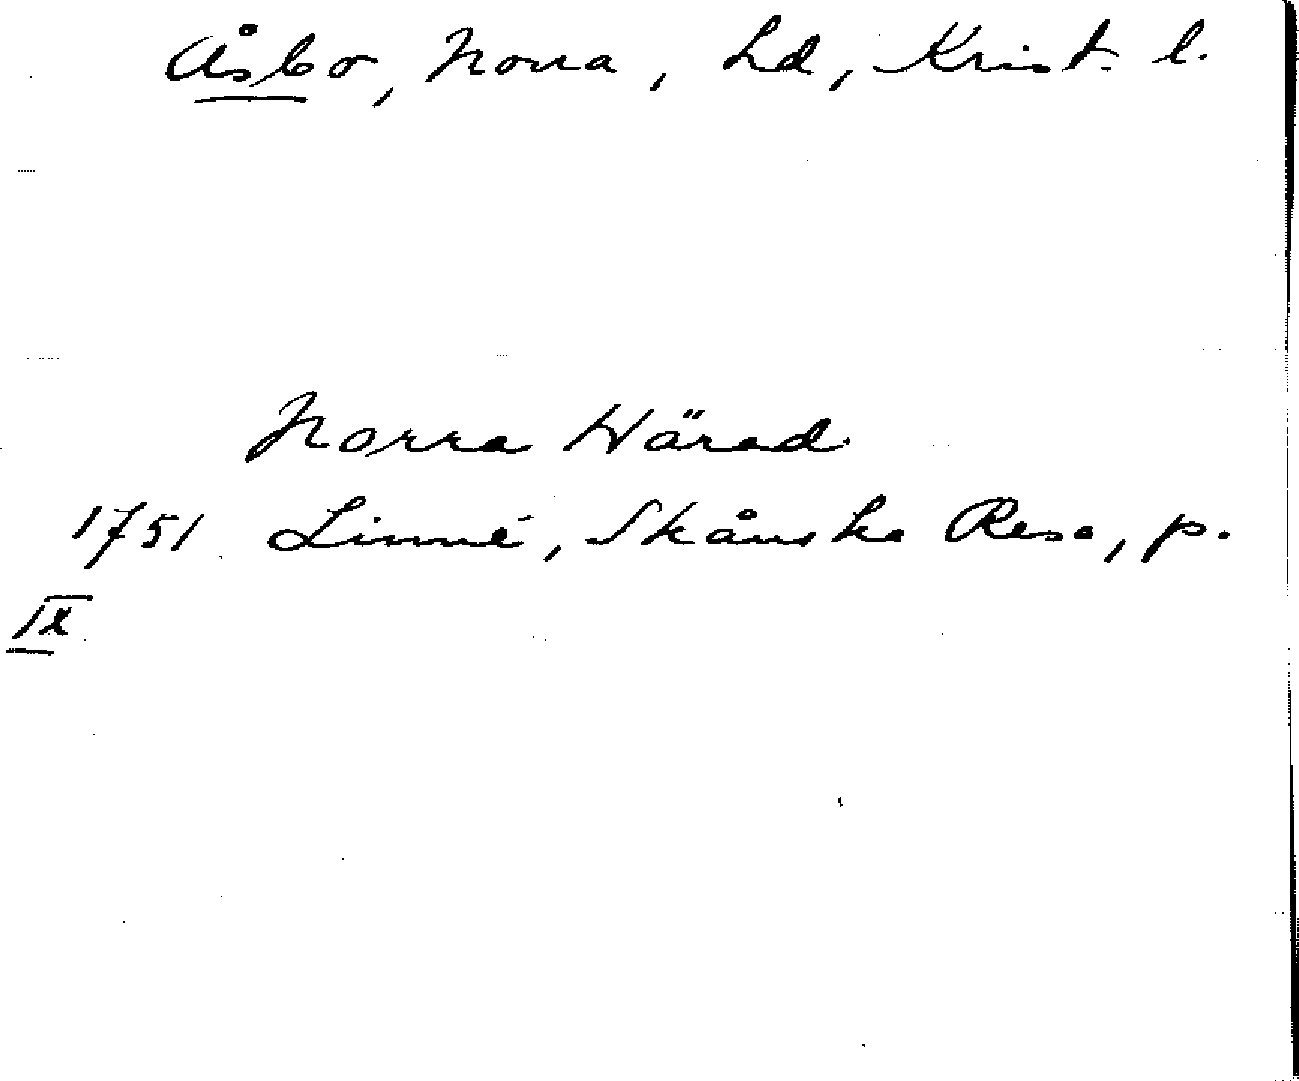 Åsbo, Norra, hd, Krist. l.
Norra Härad
1751 Linné, Skånska Resa, p.
IX